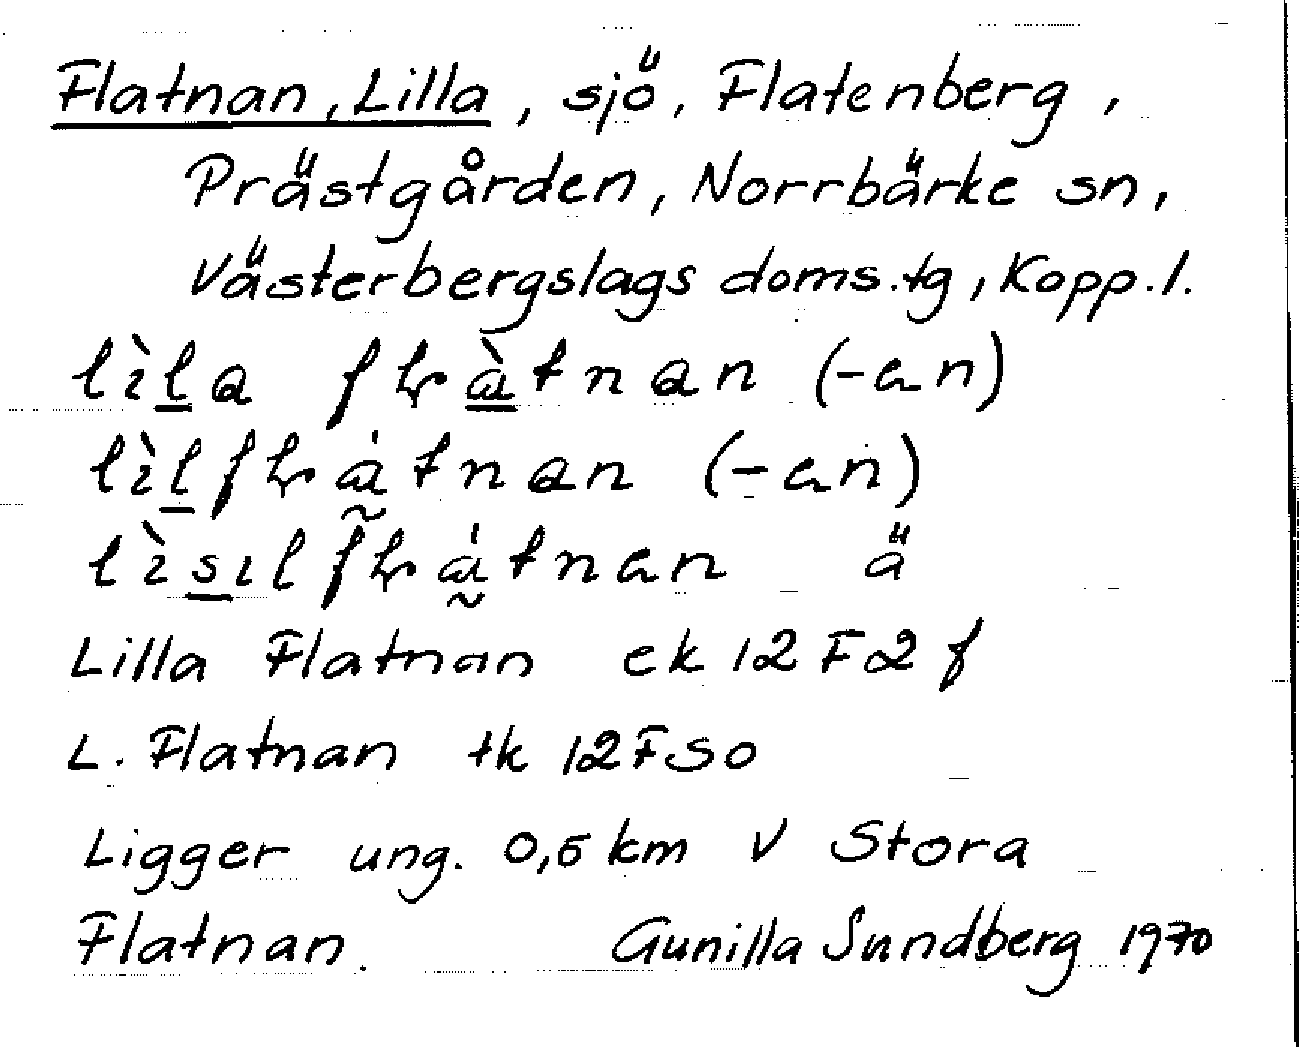 Flatnan, Lilla, sjö, Flatenberg,
Prästgården, Norrbärke sn,
Västerbergslags doms.tg, Kopp.l.
(-an)
(-an)
ä
Lilla Flatnan ek 12 F 2 f
L. Flatnan tk 12 F SO
Ligger ung. 0,5 km V Stora
Flatnan. Gunilla Sundberg 1970